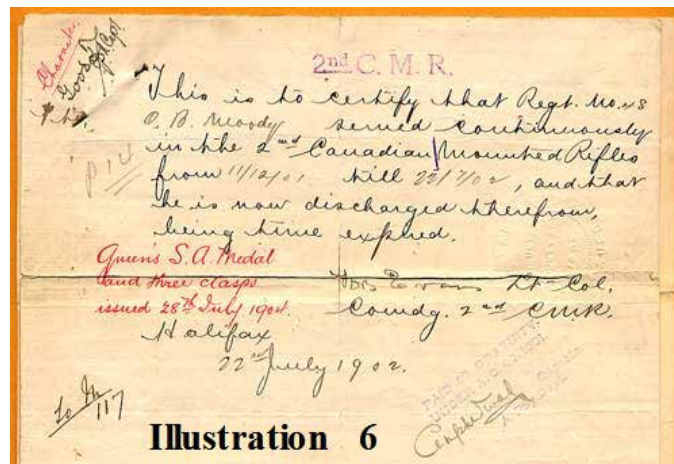 Character
Good
2nd C. M. R.
This is to certify that Regt. No. 48
O. B. Moody served continuously
in the 2nd Canadian Mounted Rifles
from 11/12/01 till 22/7/02, and that
he is now discharged therefrom,
being time expired.
Queen's S. A. Medal
and three clasps
issued 28th July 1904.
Evans Lt-Col.
Comdg. 2nd CMR.
Halifax
22nd July 1902.
PAID
UNDER
117
Illustration 6